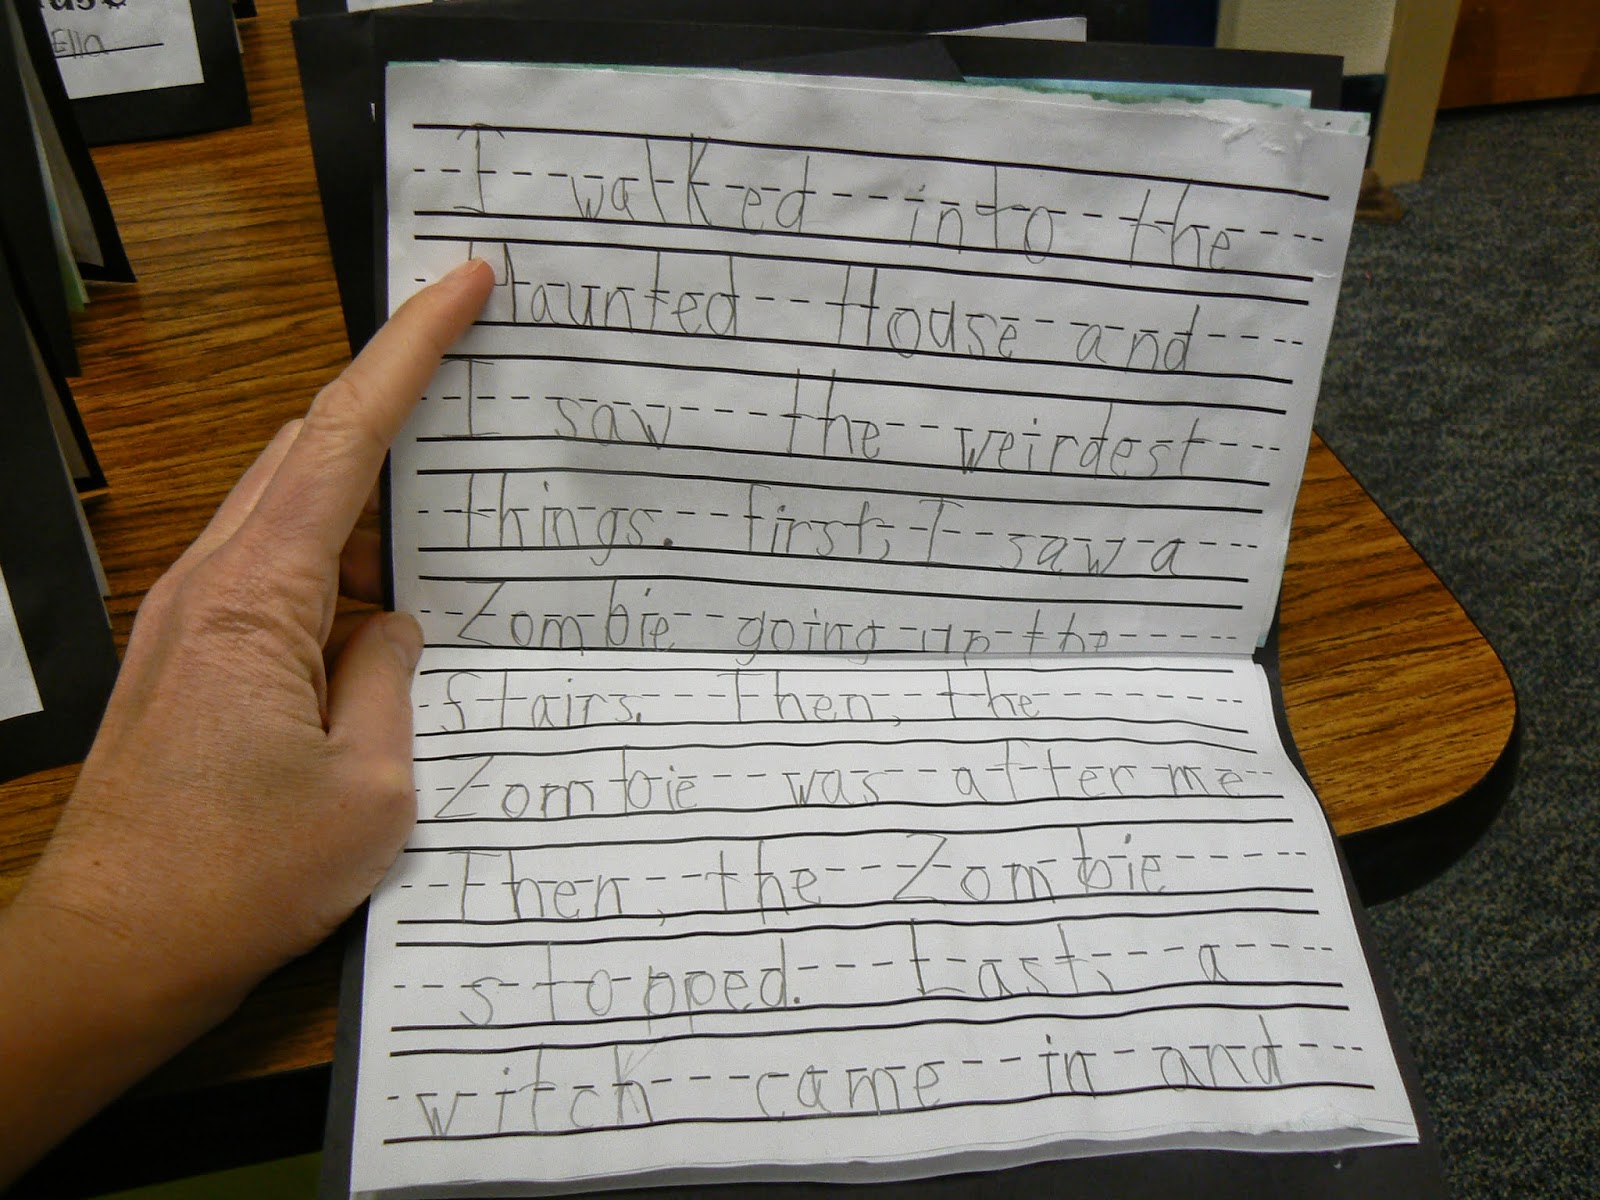 Ella
I walked into the
Haunted House and
I saw the weirdest
things. First, I saw a
Zombie going up the
stairs. Then, the
Zombie was after me
Then, the Zombie
stopped. Last, a
witch came in and